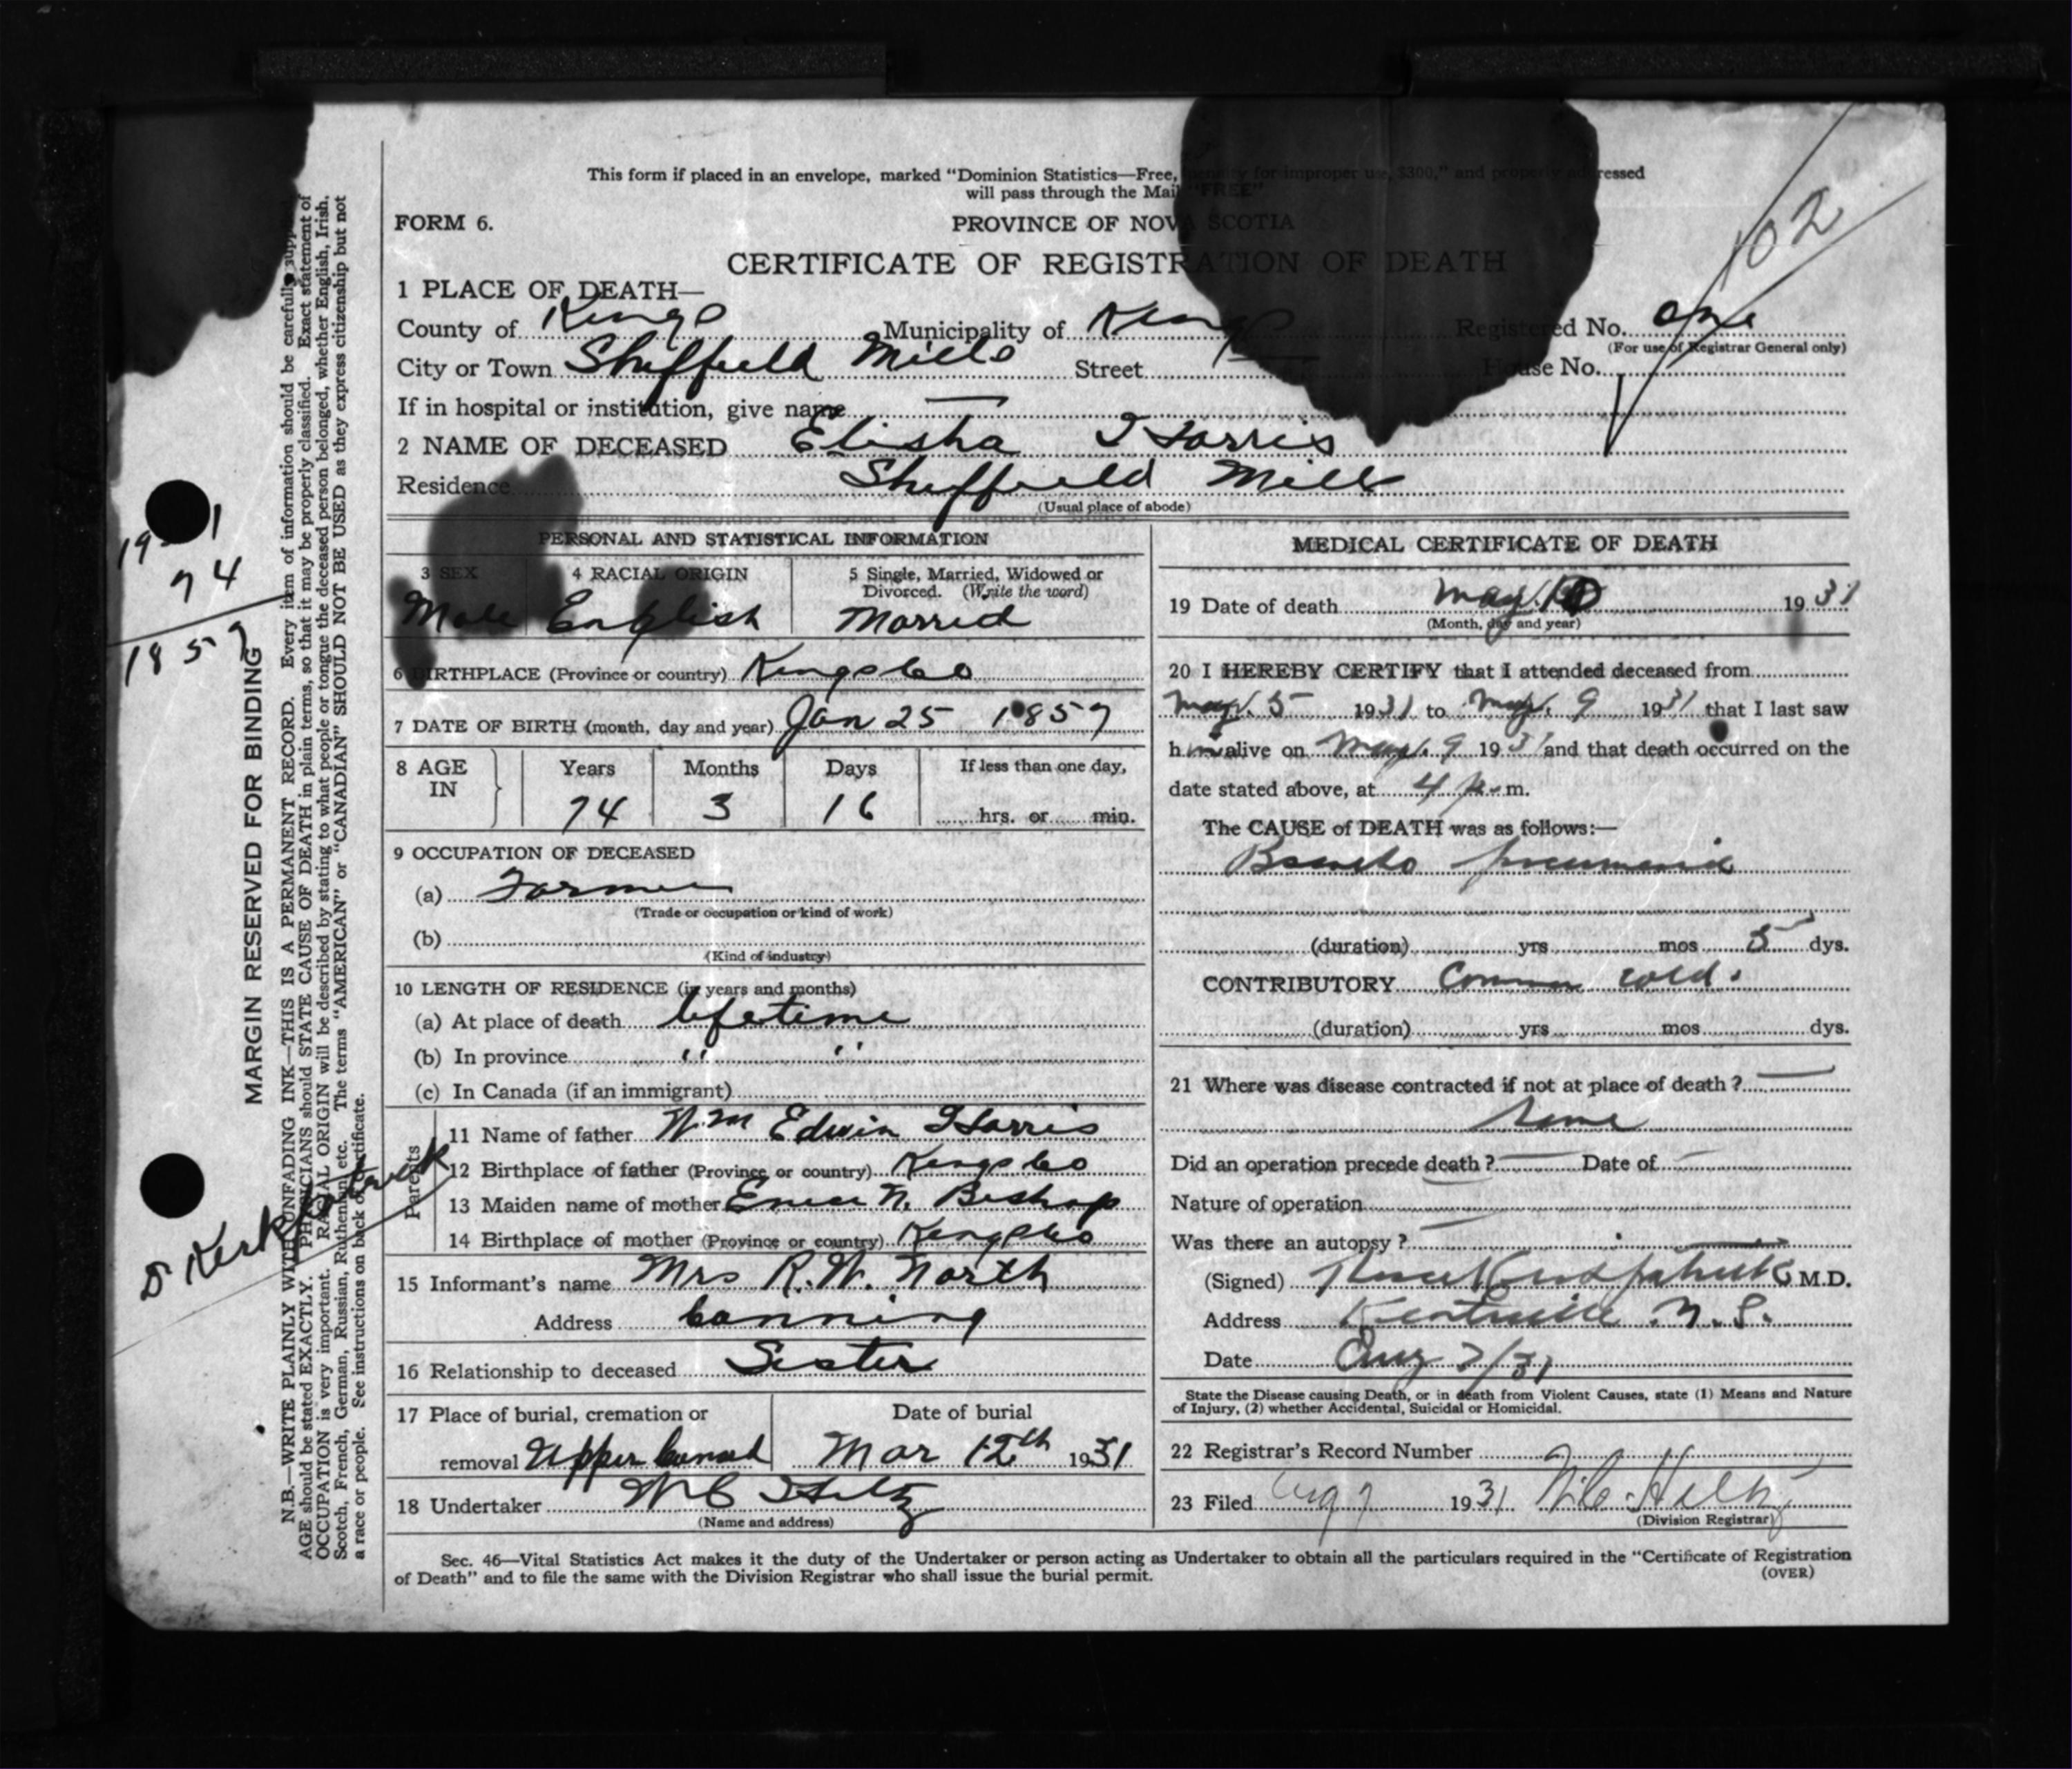 This form if placed in an envelope, marked "Dominion Statistics—Free, penalty for improper use, $300," and properly addressed
will pass through the Mail "FREE"
FORM 6.
PROVINCE OF NOVA SCOTIA
102
CERTIFICATE OF REGISTRATION OF DEATH
1 PLACE OF DEATH—
County of Kings Municipality of Kings Registered No. one
(For use of Registrar General only)
City or Town Sheffield Mills Street House No.
If in hospital or institution, give name —
2 NAME OF DECEASED Elisha Harris
Residence Sheffield Mills
(Usual place of abode)
PERSONAL AND STATISTICAL INFORMATION
3 SEX 4 RACIAL ORIGIN 5 Single, Married, Widowed or
Divorced. (Write the word)
Male English Married
6 BIRTHPLACE (Province or country) Kings Co
7 DATE OF BIRTH (month, day and year) Jan 25 1857
8 AGE IN Years Months Days If less than one day,
74 3 16 hrs. or min.
9 OCCUPATION OF DECEASED
(a) Farmer
(Trade or occupation or kind of work)
(b)
(Kind of industry)
10 LENGTH OF RESIDENCE (in years and months)
(a) At place of death lifetime
(b) In province " "
(c) In Canada (if an immigrant)
Parents
11 Name of father Wm Edwin Harris
12 Birthplace of father (Province or country) Kings Co
13 Maiden name of mother N. Bishop
14 Birthplace of mother (Province or country) Kings Co
15 Informant's name Mrs R.W. North
Address Canning
16 Relationship to deceased Sister
17 Place of burial, cremation or Date of burial
removal Upper Canard Mar 12th 1931
18 Undertaker W C Hiltz
(Name and address)
MEDICAL CERTIFICATE OF DEATH
19 Date of death May 10 1931
(Month, day and year)
20 I HEREBY CERTIFY that I attended deceased from
May 5 1931 to May 9 1931 that I last saw
him alive on May 9 1931 and that death occurred on the
date stated above, at 4 p. m.
The CAUSE of DEATH was as follows:—
Broncho pneumonia
(duration) yrs mos 5 dys.
CONTRIBUTORY Common cold.
(duration) yrs mos dys.
21 Where was disease contracted if not at place of death? —
Did an operation precede death? — Date of —
Nature of operation
Was there an autopsy?
(Signed) Kirkpatrick M.D.
Address Kentville N.S.
Date Aug 7/31
State the Disease causing Death, or in death from Violent Causes, state (1) Means and Nature
of Injury, (2) whether Accidental, Suicidal or Homicidal.
22 Registrar's Record Number
23 Filed Aug 7 1931 W.C. Hiltz
(Division Registrar)
Sec. 46—Vital Statistics Act makes it the duty of the Undertaker or person acting as Undertaker to obtain all the particulars required in the "Certificate of Registration
of Death" and to file the same with the Division Registrar who shall issue the burial permit.
(OVER)
MARGIN RESERVED FOR BINDING
N.B.—WRITE PLAINLY WITH UNFADING INK—THIS IS A PERMANENT RECORD. Every item of information should be carefully supplied.
AGE should be stated EXACTLY. PHYSICIANS should STATE CAUSE OF DEATH in plain terms, so that it may be properly classified. Exact statement of
OCCUPATION is very important. RACIAL ORIGIN will be described by stating to what people or tongue the deceased person belonged, whether English, Irish,
Scotch, French, German, Russian, Ruthenian, etc. The terms "AMERICAN" or "CANADIAN" SHOULD NOT BE USED as they express citizenship but not
a race or people. See instructions on back of certificate.
74
1857
Dr Kirkpatrick